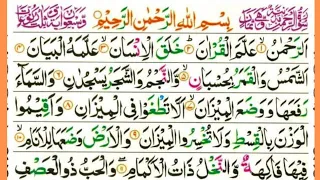 بِسْمِ اللهِ الرَّحْمٰنِ الرَّحِيْمِ
اَلرَّحْمٰنُ ۙ﴿۱﴾ عَلَّمَ الْقُرْاٰنَ ؕ﴿۲﴾ خَلَقَ الْاِنْسَانَ ۙ﴿۳﴾ عَلَّمَهُ الْبَيَانَ ﴿۴﴾
اَلشَّمْسُ وَالْقَمَرُ بِحُسْبَانٍ ﴿۵﴾ وَّالنَّجْمُ وَالشَّجَرُ يَسْجُدٰنِ ﴿۶﴾ وَالسَّمَآءَ
رَفَعَهَا وَوَضَعَ الْمِيْزَانَ ۙ﴿۷﴾ اَلَّا تَطْغَوْا فِى الْمِيْزَانِ ﴿۸﴾ وَاَقِيْمُوا
الْوَزْنَ بِالْقِسْطِ وَلَا تُخْسِرُوا الْمِيْزَانَ ﴿۹﴾ وَالْاَرْضَ وَضَعَهَا لِلْاَنَامِ ۙ﴿۱۰﴾
فِيْهَا فَاكِهَةٌ ۙ وَّالنَّخْلُ ذَاتُ الْاَكْمَامِ ﴿۱۱﴾ وَالْحَبُّ ذُو الْعَصْفِ